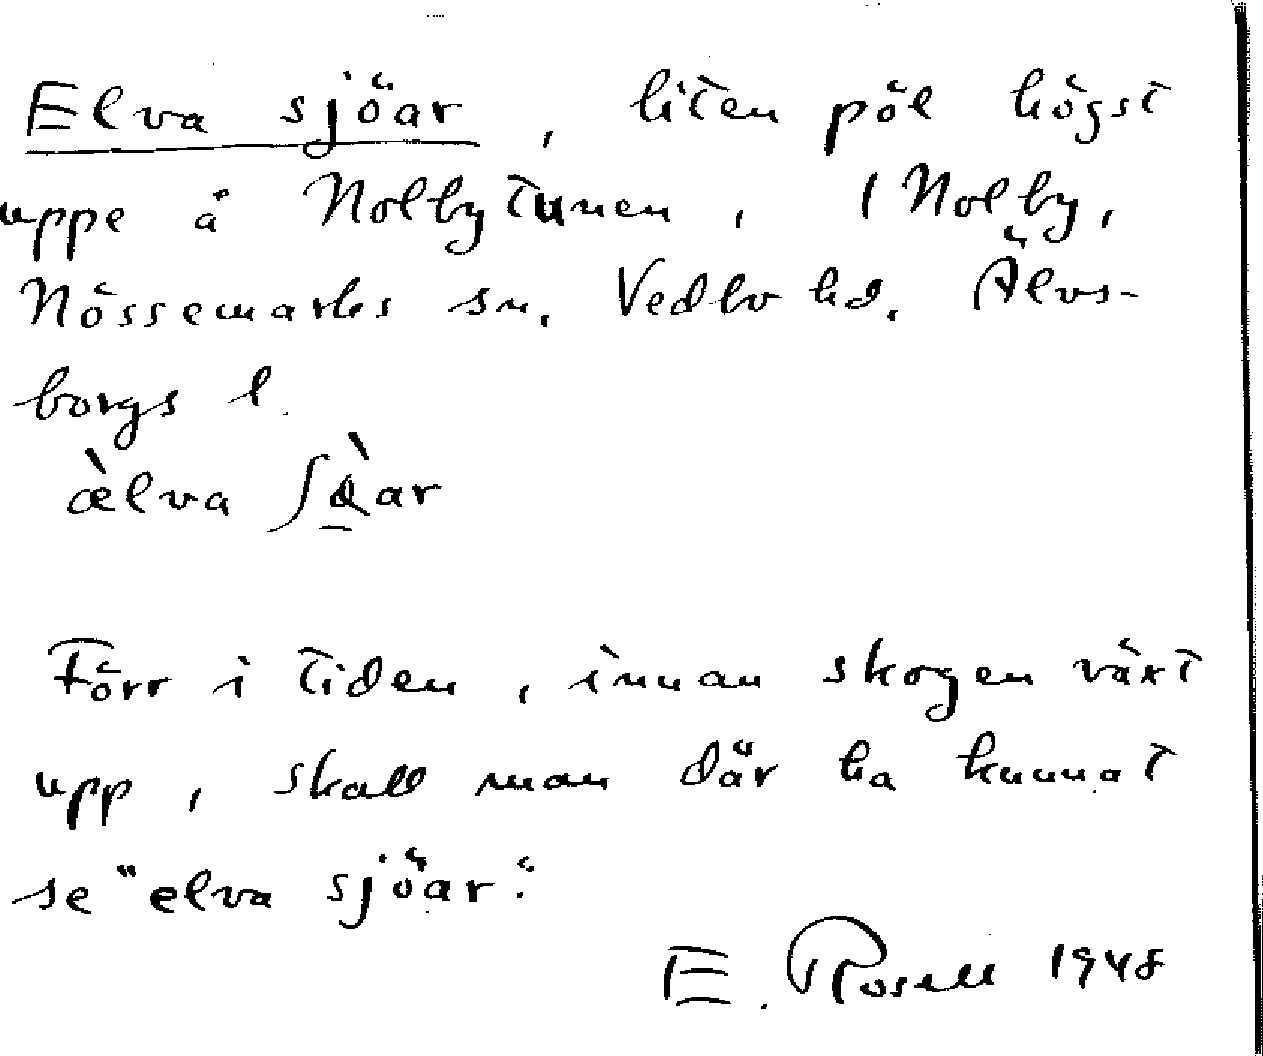 Elva sjöar, liten pöl högst
uppe å Nolbytunen, i Nolby,
Nössemarks sn. Vedbo hd. Älvs-
borgs l.
æ̀lva ʃàar
Förr i tiden, innan skogen växt
upp, skall man där ha kunnat
se "elva sjöar."
E. Rosell 1948